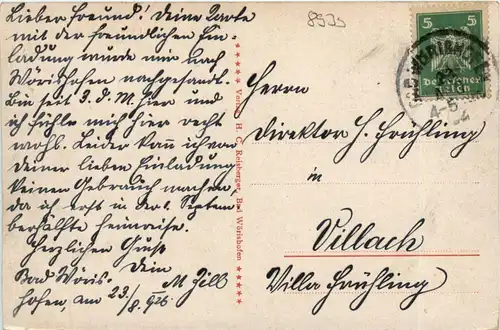 Lieber Freund! Deine Karte
mit der freundlichen Ein-
ladung wurde mir nach
Wörishofen nachgesandt.
Bin seit 3. d. M. hier und
ich fühle mich hier recht
wohl. Leider kann ich von
deiner lieben Einladung
keinen Gebrauch machen,
da ich erst in der Septem
heimreise.
Herzlichen Gruß
Dein
Bad Wöris-
hofen, am 23/8. 926.
M Zill
★★★★★ Verlag H. C. Reisberger, Bad Wörishofen ★★★★★
5 5
Deutsches
Reich
Herrn
Direktor H. Frühling
in
Villach
Villa Frühling